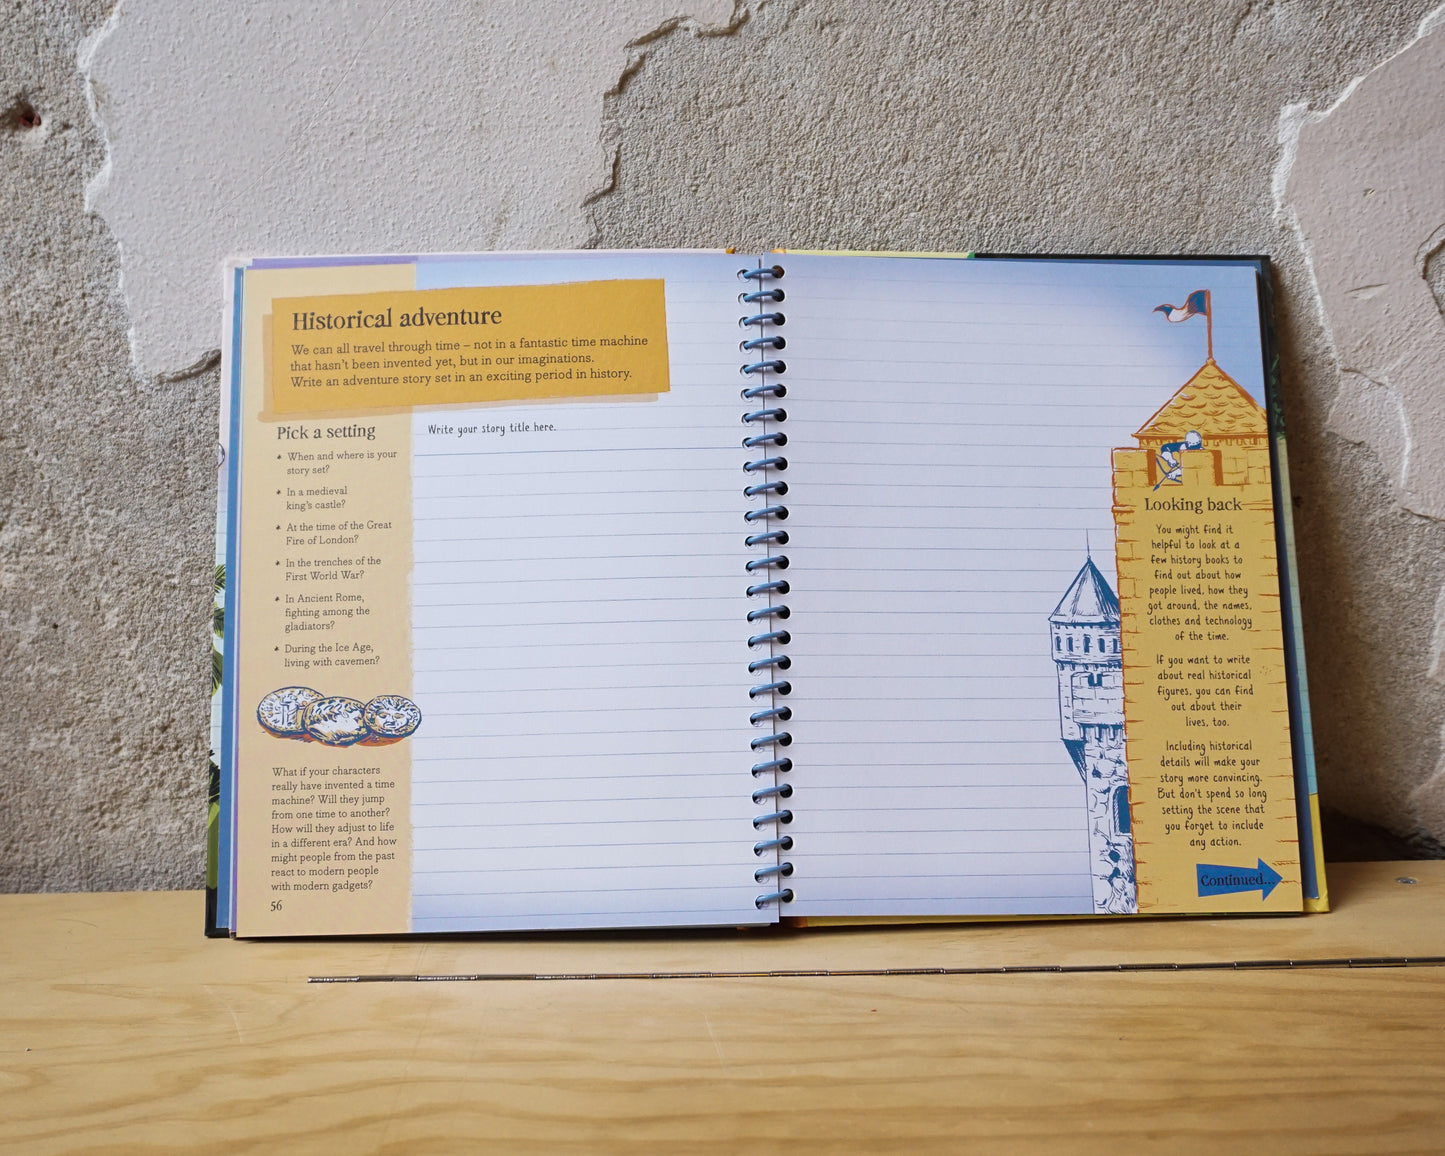 Historical adventure
We can all travel through time – not in a fantastic time machine
that hasn't been invented yet, but in our imaginations.
Write an adventure story set in an exciting period in history.
Pick a setting
* When and where is your
story set?
* In a medieval
king's castle?
* At the time of the Great
Fire of London?
* In the trenches of the
First World War?
* In Ancient Rome,
fighting among the
gladiators?
* During the Ice Age,
living with cavemen?
What if your characters
really have invented a time
machine? Will they jump
from one time to another?
How will they adjust to life
in a different era? And how
might people from the past
react to modern people
with modern gadgets?
56
Write your story title here.
Looking back
You might find it
helpful to look at a
few history books to
find out about how
people lived, how they
got around, the names,
clothes and technology
of the time.
If you want to write
about real historical
figures, you can find
out about their
lives, too.
Including historical
details will make your
story more convincing.
But don't spend so long
setting the scene that
you forget to include
any action.
Continued...